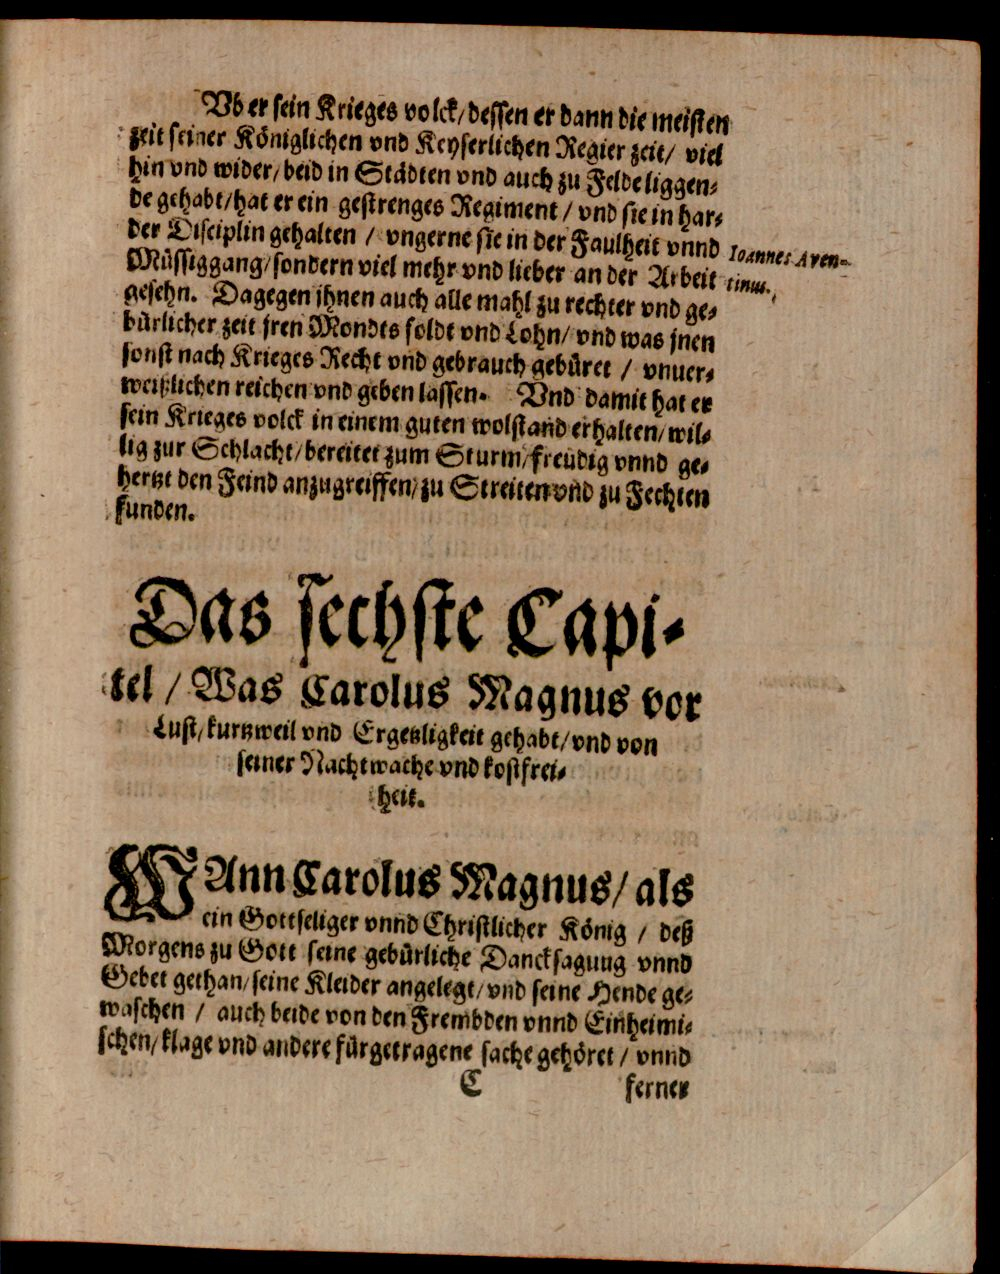 Vber sein Krieges volck/ dessen er dann die meisten
zeit seiner Königlichen vnd Keyserlichen Regier zeit/ viel
hin vnd wider/ beid in Städten vnd auch zu Felde liggen⸗
de gehabt/ hat er ein gestrenges Regiment / vnd sie in har⸗
der Disciplin gehalten / vngerne sie in der Faulheit vnnd
Müssiggang/ sondern viel mehr vnd lieber an der Arbeit
Ioannes Aven⸗
tinus.
gesehn. Dagegen jhnen auch alle mahl zu rechter vnd ge⸗
bürlicher zeit jren Mondts soldt vnd Lohn/ vnd was jnen
sonst nach Krieges Recht vnd gebrauch gebüret / vnuer⸗
weißlichen reichen vnd geben lassen. Vnd damit hat er
sein Krieges volck in einem guten wolstand erhalten/ wil⸗
lig zur Schlacht/ bereitet zum Sturm/ freudig vnnd ge⸗
hertzt den Feind anzugreiffen/ zu Streiten vnd zu Fechten
funden.
Das sechste Capi⸗
tel / Was Carolus Magnus vor
Lust/ kurtzweil vnd Ergetzligkeit gehabt/ vnd von
seiner Nachtwache vnd kostfrei⸗
heit.
WAnn Carolus Magnus/ als
ein Gottseliger vnnd Christlicher König / deß
Morgens zu Gott seine gebürliche Dancksagung vnnd
Gebet gethan/ seine Kleider angelegt/ vnd seine Hende ge⸗
waschen / auch beide von den Frembden vnnd Einheimi⸗
schen/ klage vnd andere fürgetragene sache gehöret / vnnd
C ferner